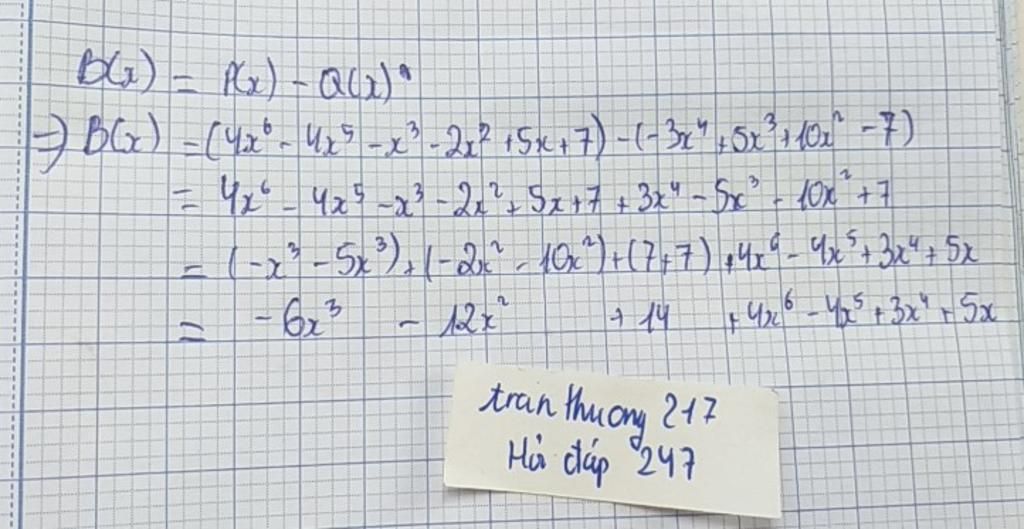 B(x) = P(x) - Q(x)
=> B(x) = (4x⁶ - 4x⁵ - x³ - 2x² + 5x + 7) - (-3x⁴ + 5x³ + 10x² - 7)
= 4x⁶ - 4x⁵ - x³ - 2x² + 5x + 7 + 3x⁴ - 5x³ - 10x² + 7
= (-x³ - 5x³) + (-2x² - 10x²) + (7 + 7) + 4x⁶ - 4x⁵ + 3x⁴ + 5x
= -6x³ - 12x² + 14 + 4x⁶ - 4x⁵ + 3x⁴ + 5x
tran thuong 217
Hỏi đáp 247